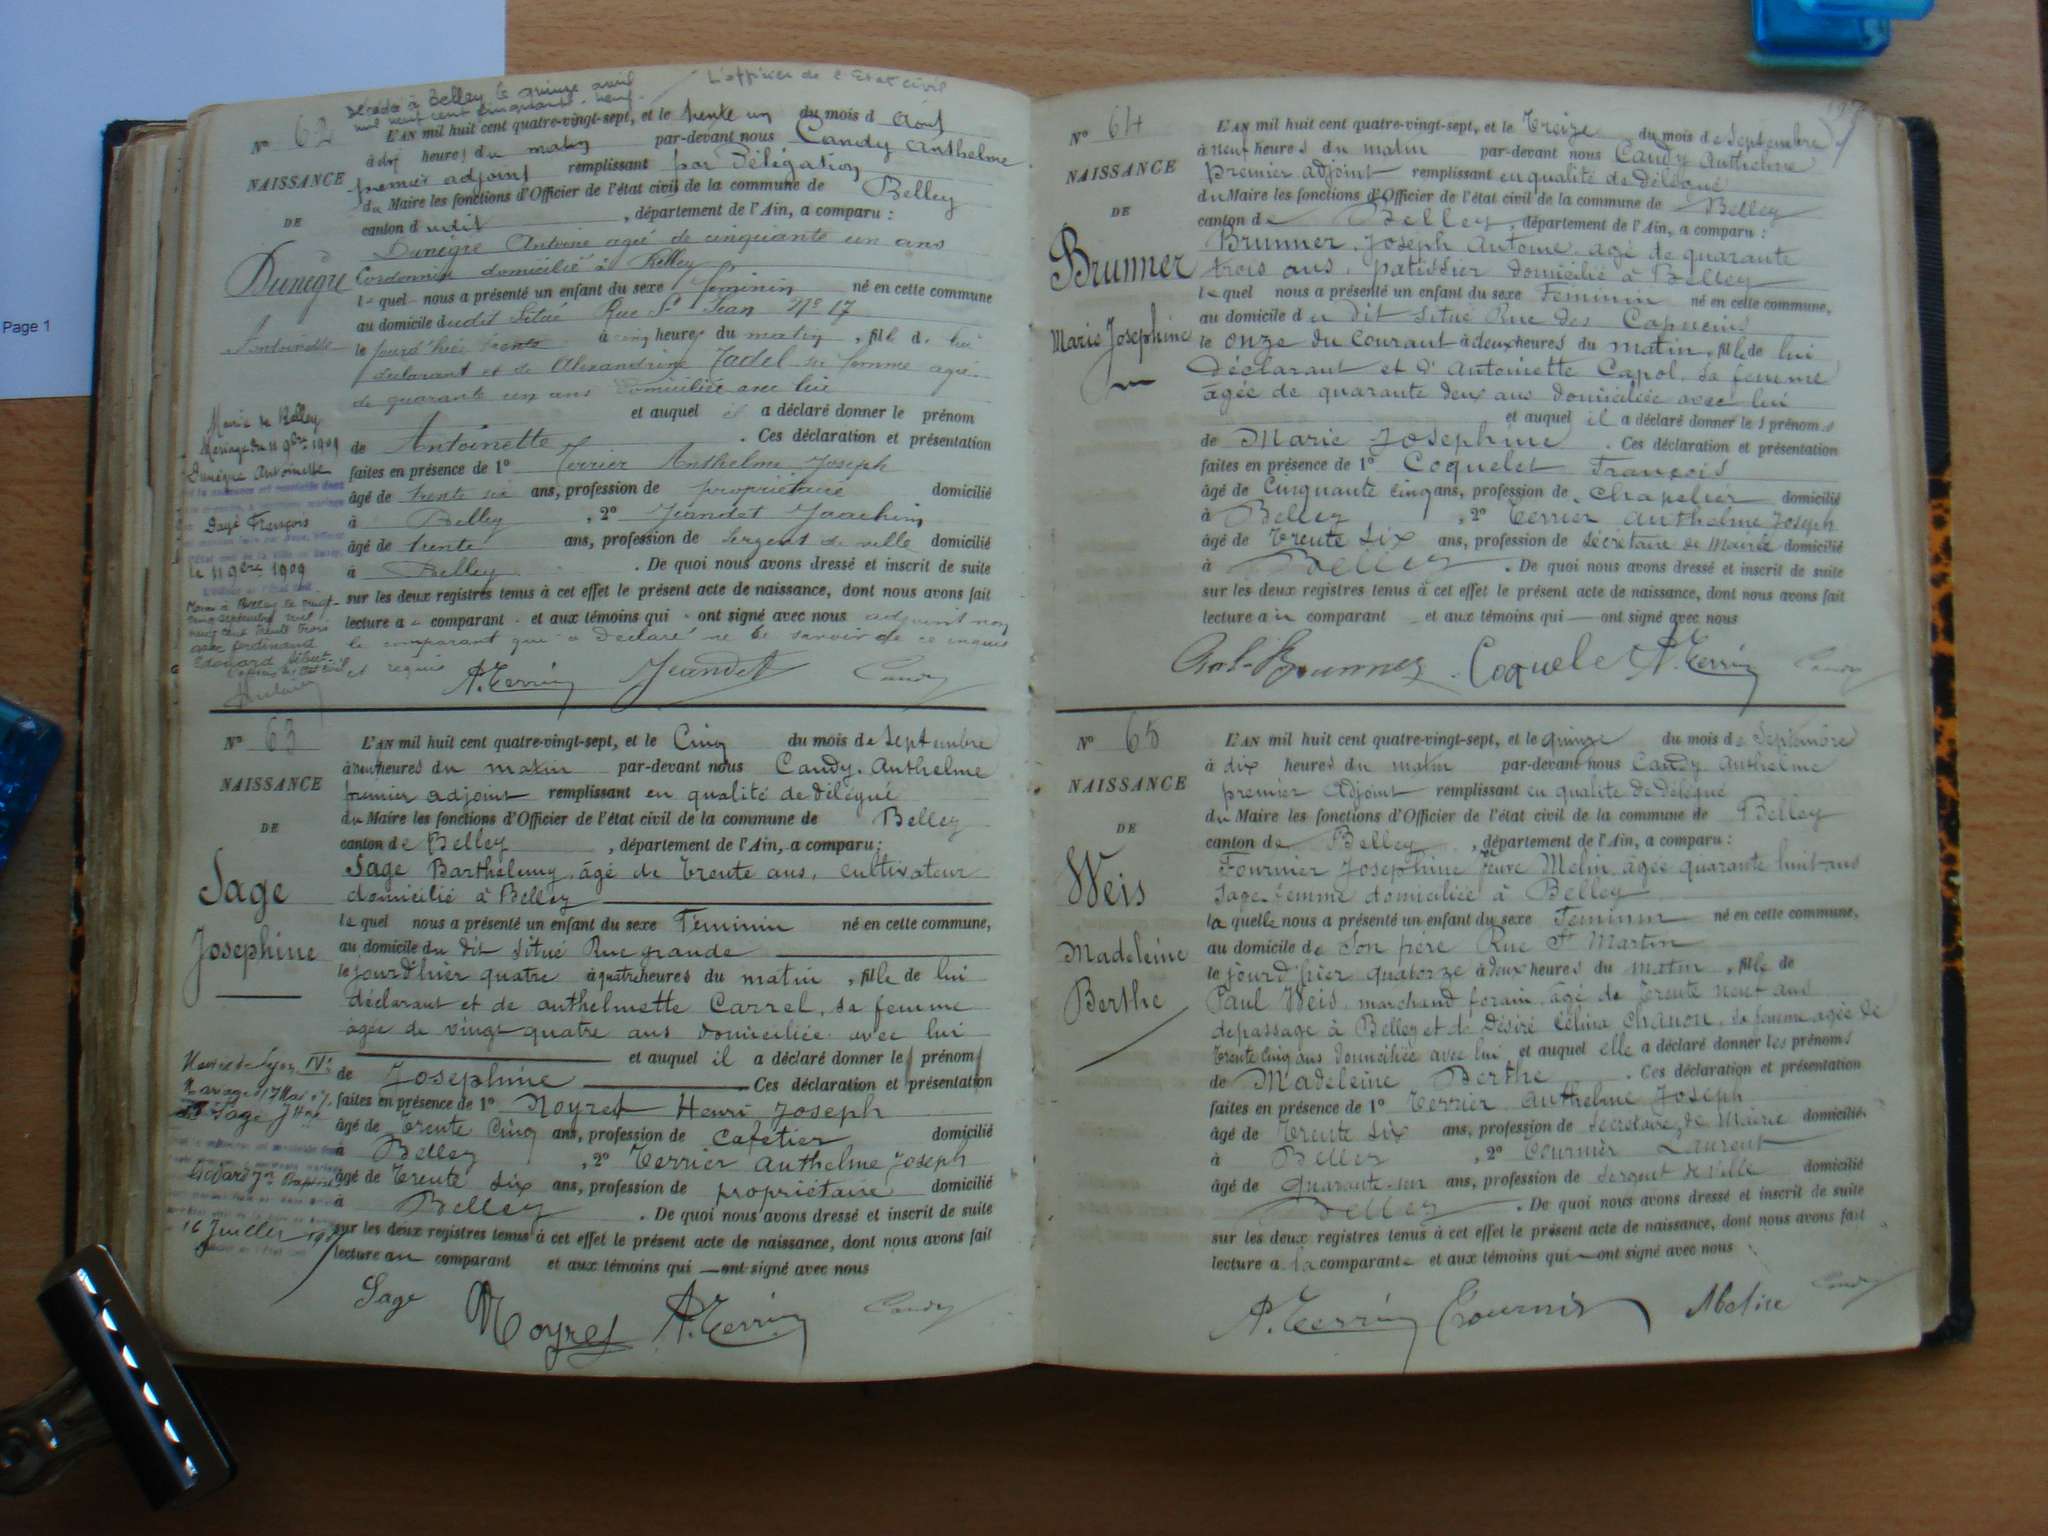 Page 1
Décédée à Belley le quinze avril
mil neuf cent cinquante-neuf.
L'officier de l'Etat civil
N° 62
L'AN mil huit cent quatre-vingt-sept, et le trente un du mois d Août
à dix heures du matin par-devant nous Candy Anthelme
premier adjoint remplissant par Délégation
NAISSANCE
du Maire les fonctions d'Officier de l'état civil de la commune de Belley
DE
canton dudit, département de l'Ain, a comparu :
Dunègre Antoine agé de cinquante un ans
Dunègre
Cordonnier domicilié à Belley
lequel nous a présenté un enfant du sexe féminin né en cette commune
au domicile dudit situé Rue St Jean N° 17
Antoinette
le jourd'hier trente à cinq heures du matin, fille de lui
déclarant et de Alexandrine Tadel sa femme agée
de quarante un ans domiciliée avec lui
et auquel il a déclaré donner le prénom
de Antoinette. Ces déclaration et présentation
faites en présence de 1° Terrier Anthelme Joseph
âgé de trente six ans, profession de propriétaire domicilié
à Belley, 2° Jeandet Joachim
âgé de trente ans, profession de Sergent de ville domicilié
à Belley. De quoi nous avons dressé et inscrit de suite
sur les deux registres tenus à cet effet le présent acte de naissance, dont nous avons fait
lecture au comparant et aux témoins qui ont signé avec nous adjoint non
le comparant qui a déclaré ne le savoir de ce enquis
et requis
A. Terrier Jeandet Candy
Mairie de Belley
Mariage du 11 9bre 1909
Dunègre Antoinette
Dagé François
le 11 9bre 1909
N° 63
L'AN mil huit cent quatre-vingt-sept, et le Cinq du mois de Septembre
à neuf heures du matin par-devant nous Candy Anthelme
NAISSANCE
premier adjoint remplissant en qualité de délégué
du Maire les fonctions d'Officier de l'état civil de la commune de Belley
DE
canton de Belley, département de l'Ain, a comparu :
Sage Barthélemy, âgé de trente ans, cultivateur
Sage
domicilié à Belley
lequel nous a présenté un enfant du sexe Féminin né en cette commune,
Josephine
au domicile du dit situé Rue grande
le jourd'hier quatre à quatre heures du matin, fille de lui
déclarant et de anthelmette Carrel, sa femme
âgée de vingt quatre ans domiciliée avec lui
et auquel il a déclaré donner le prénom
de Josephine Ces déclaration et présentation
faites en présence de 1° Noyret Henri Joseph
âgé de trente cinq ans, profession de cafetier domicilié
à Belley, 2° Terrier Anthelme Joseph
âgé de trente six ans, profession de propriétaire domicilié
à Belley. De quoi nous avons dressé et inscrit de suite
sur les deux registres tenus à cet effet le présent acte de naissance, dont nous avons fait
lecture au comparant et aux témoins qui ont signé avec nous
Sage Noyret A. Terrier Candy
Mairie de Lyon IVe
Mariage 17 Mai 07
Sage Jhne
16 Juillet
N° 64
L'AN mil huit cent quatre-vingt-sept, et le Treize du mois de Septembre
à neuf heures du matin par-devant nous Candy Anthelme
NAISSANCE
premier adjoint remplissant en qualité de délégué
du Maire les fonctions d'Officier de l'état civil de la commune de Belley
DE
canton de Belley, département de l'Ain, a comparu :
Brunner Joseph Antoine, agé de quarante
Brunner
trois ans, patissier domicilié à Belley
lequel nous a présenté un enfant du sexe Féminin né en cette commune,
au domicile du dit situé Rue des Capucins
Marie Josephine
le onze du courant à deux heures du matin, fille de lui
Déclarant et d'Antoinette Capol, sa femme
âgée de quarante deux ans domiciliée avec lui
et auquel il a déclaré donner les prénoms
de Marie Josephine. Ces déclaration et présentation
faites en présence de 1° Coquelet François
âgé de Cinquante cinq ans, profession de chapelier domicilié
à Belley, 2° Terrier Anthelme Joseph
âgé de trente six ans, profession de Secrétaire de Mairie domicilié
à Belley. De quoi nous avons dressé et inscrit de suite
sur les deux registres tenus à cet effet le présent acte de naissance, dont nous avons fait
lecture au comparant et aux témoins qui ont signé avec nous
Brunner Coquelet A. Terrier Candy
N° 65
L'AN mil huit cent quatre-vingt-sept, et le quinze du mois de Septembre
à dix heures du matin par-devant nous Candy Anthelme
NAISSANCE
premier Adjoint remplissant en qualité de délégué
du Maire les fonctions d'Officier de l'état civil de la commune de Belley
DE
canton de Belley, département de l'Ain, a comparu :
Fournier Josephine Veuve Melin, âgée quarante huit ans
Weis
Sage-femme domiciliée à Belley
la quelle nous a présenté un enfant du sexe Feminin né en cette commune,
Madeleine
au domicile de Son père Rue St Martin
le jourd'hier quatorze à deux heures du matin, fille de
Berthe
Paul Weis, marchand forain, âgé de trente neuf ans
de passage à Belley et de Désiré Célina Chanon, sa femme agée de
trente cinq ans domiciliée avec lui et auquel elle a déclaré donner les prénoms
de Madeleine Berthe. Ces déclaration et présentation
faites en présence de 1° Terrier Anthelme Joseph
âgé de trente six ans, profession de Secrétaire de Mairie domicilié
à Belley, 2° Tournier Laurent
âgé de Quarante-un ans, profession de Sergent de Ville domicilié
Belley. De quoi nous avons dressé et inscrit de suite
sur les deux registres tenus à cet effet le présent acte de naissance, dont nous avons fait
lecture à la comparante et aux témoins qui ont signé avec nous
A. Terrier Tournier Candy